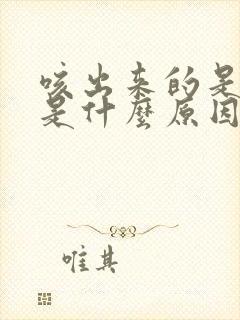 咳出来的是
是什麼原因
唯其